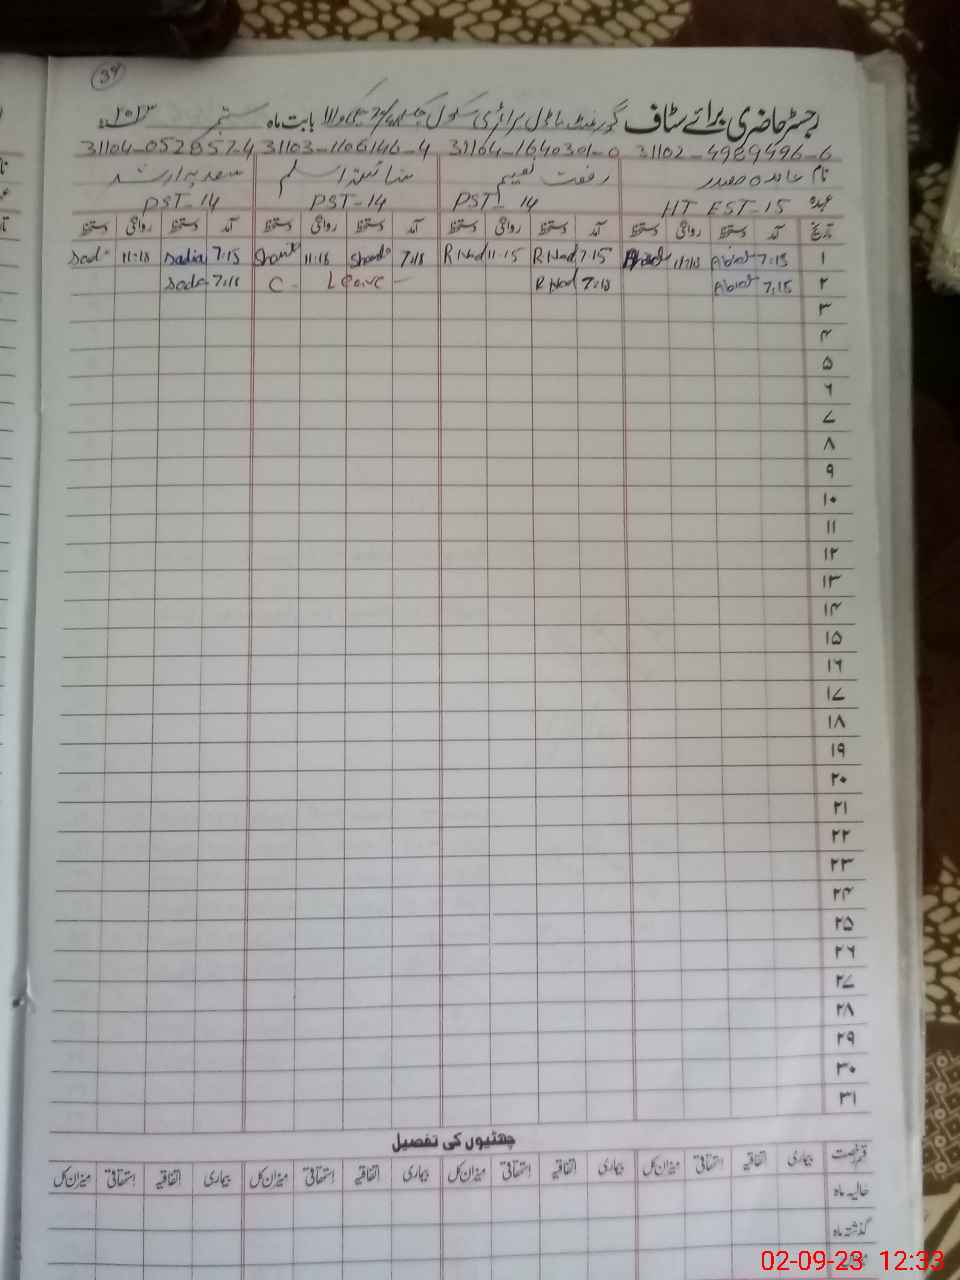 39
رجسٹر حاضری برائے سٹاف گورنمنٹ ماڈل پرائمری سکول بابت ماہ ستمبر ۲۰۲۳
31102-4989496-6 31104-1640301-0 31103-1106146-4 31104-0528574
نام عابدہ صفدر رفعت نعیم شائستہ اسلم سعدیہ ارشد
عہدہ HT EST-15 PST-14 PST-14 PST-14
تاریخ آمد دستخط روانگی دستخط آمد دستخط روانگی دستخط آمد دستخط روانگی دستخط آمد دستخط روانگی دستخط
۱ 7:15 7:15 R 11:15 R 7:15 11:15 7:15 Sadia 11:15
۲ 7:15 7:15 R C - Leave - 7:15
۳
۴
۵
۶
۷
۸
۹
۱۰
۱۱
۱۲
۱۳
۱۴
۱۵
۱۶
۱۷
۱۸
۱۹
۲۰
۲۱
۲۲
۲۳
۲۴
۲۵
۲۶
۲۷
۲۸
۲۹
۳۰
۳۱
چھٹیوں کی تفصیل
قسم رخصت بیماری اتفاقیہ استحقاقی میزان کل بیماری اتفاقیہ استحقاقی میزان کل بیماری اتفاقیہ استحقاقی میزان کل بیماری اتفاقیہ استحقاقی میزان کل
حالیہ ماہ
گذشتہ ماہ
02-09-23 12:33